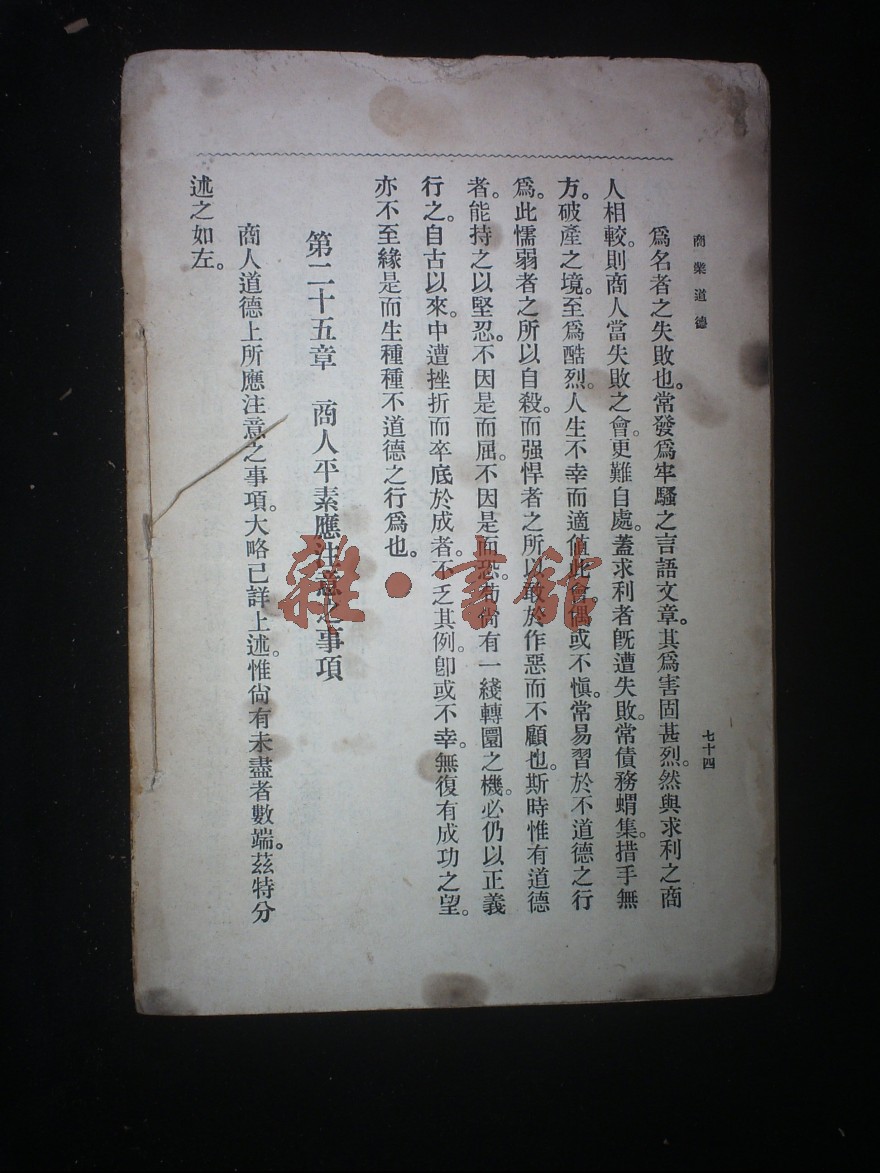 商業道德
七十四
爲名者之失敗也。常發爲牢騷之言語文章。其爲害固甚烈。然與求利之商
人相較。則商人當失敗之會。更難自處。蓋求利者旣遭失敗。常債務蝟集。措手無
方。破產之境。至爲酷烈。人生不幸而適値此會。偶或不愼。常易習於不道德之行
爲。此懦弱者之所以自殺。而强悍者之所以敢於作惡而不顧也。斯時惟有道德
者。能持之以堅忍。不因是而屈。不因是而恐。苟尙有一綫轉圜之機。必仍以正義
行之。自古以來。中遭挫折而卒底於成者。不乏其例。卽或不幸。無復有成功之望。
亦不至緣是而生種種不道德之行爲也。
第二十五章　商人平素應注意之事項
商人道德上所應注意之事項。大略已詳上述。惟尙有未盡者數端。茲特分
述之如左。
雜·書館